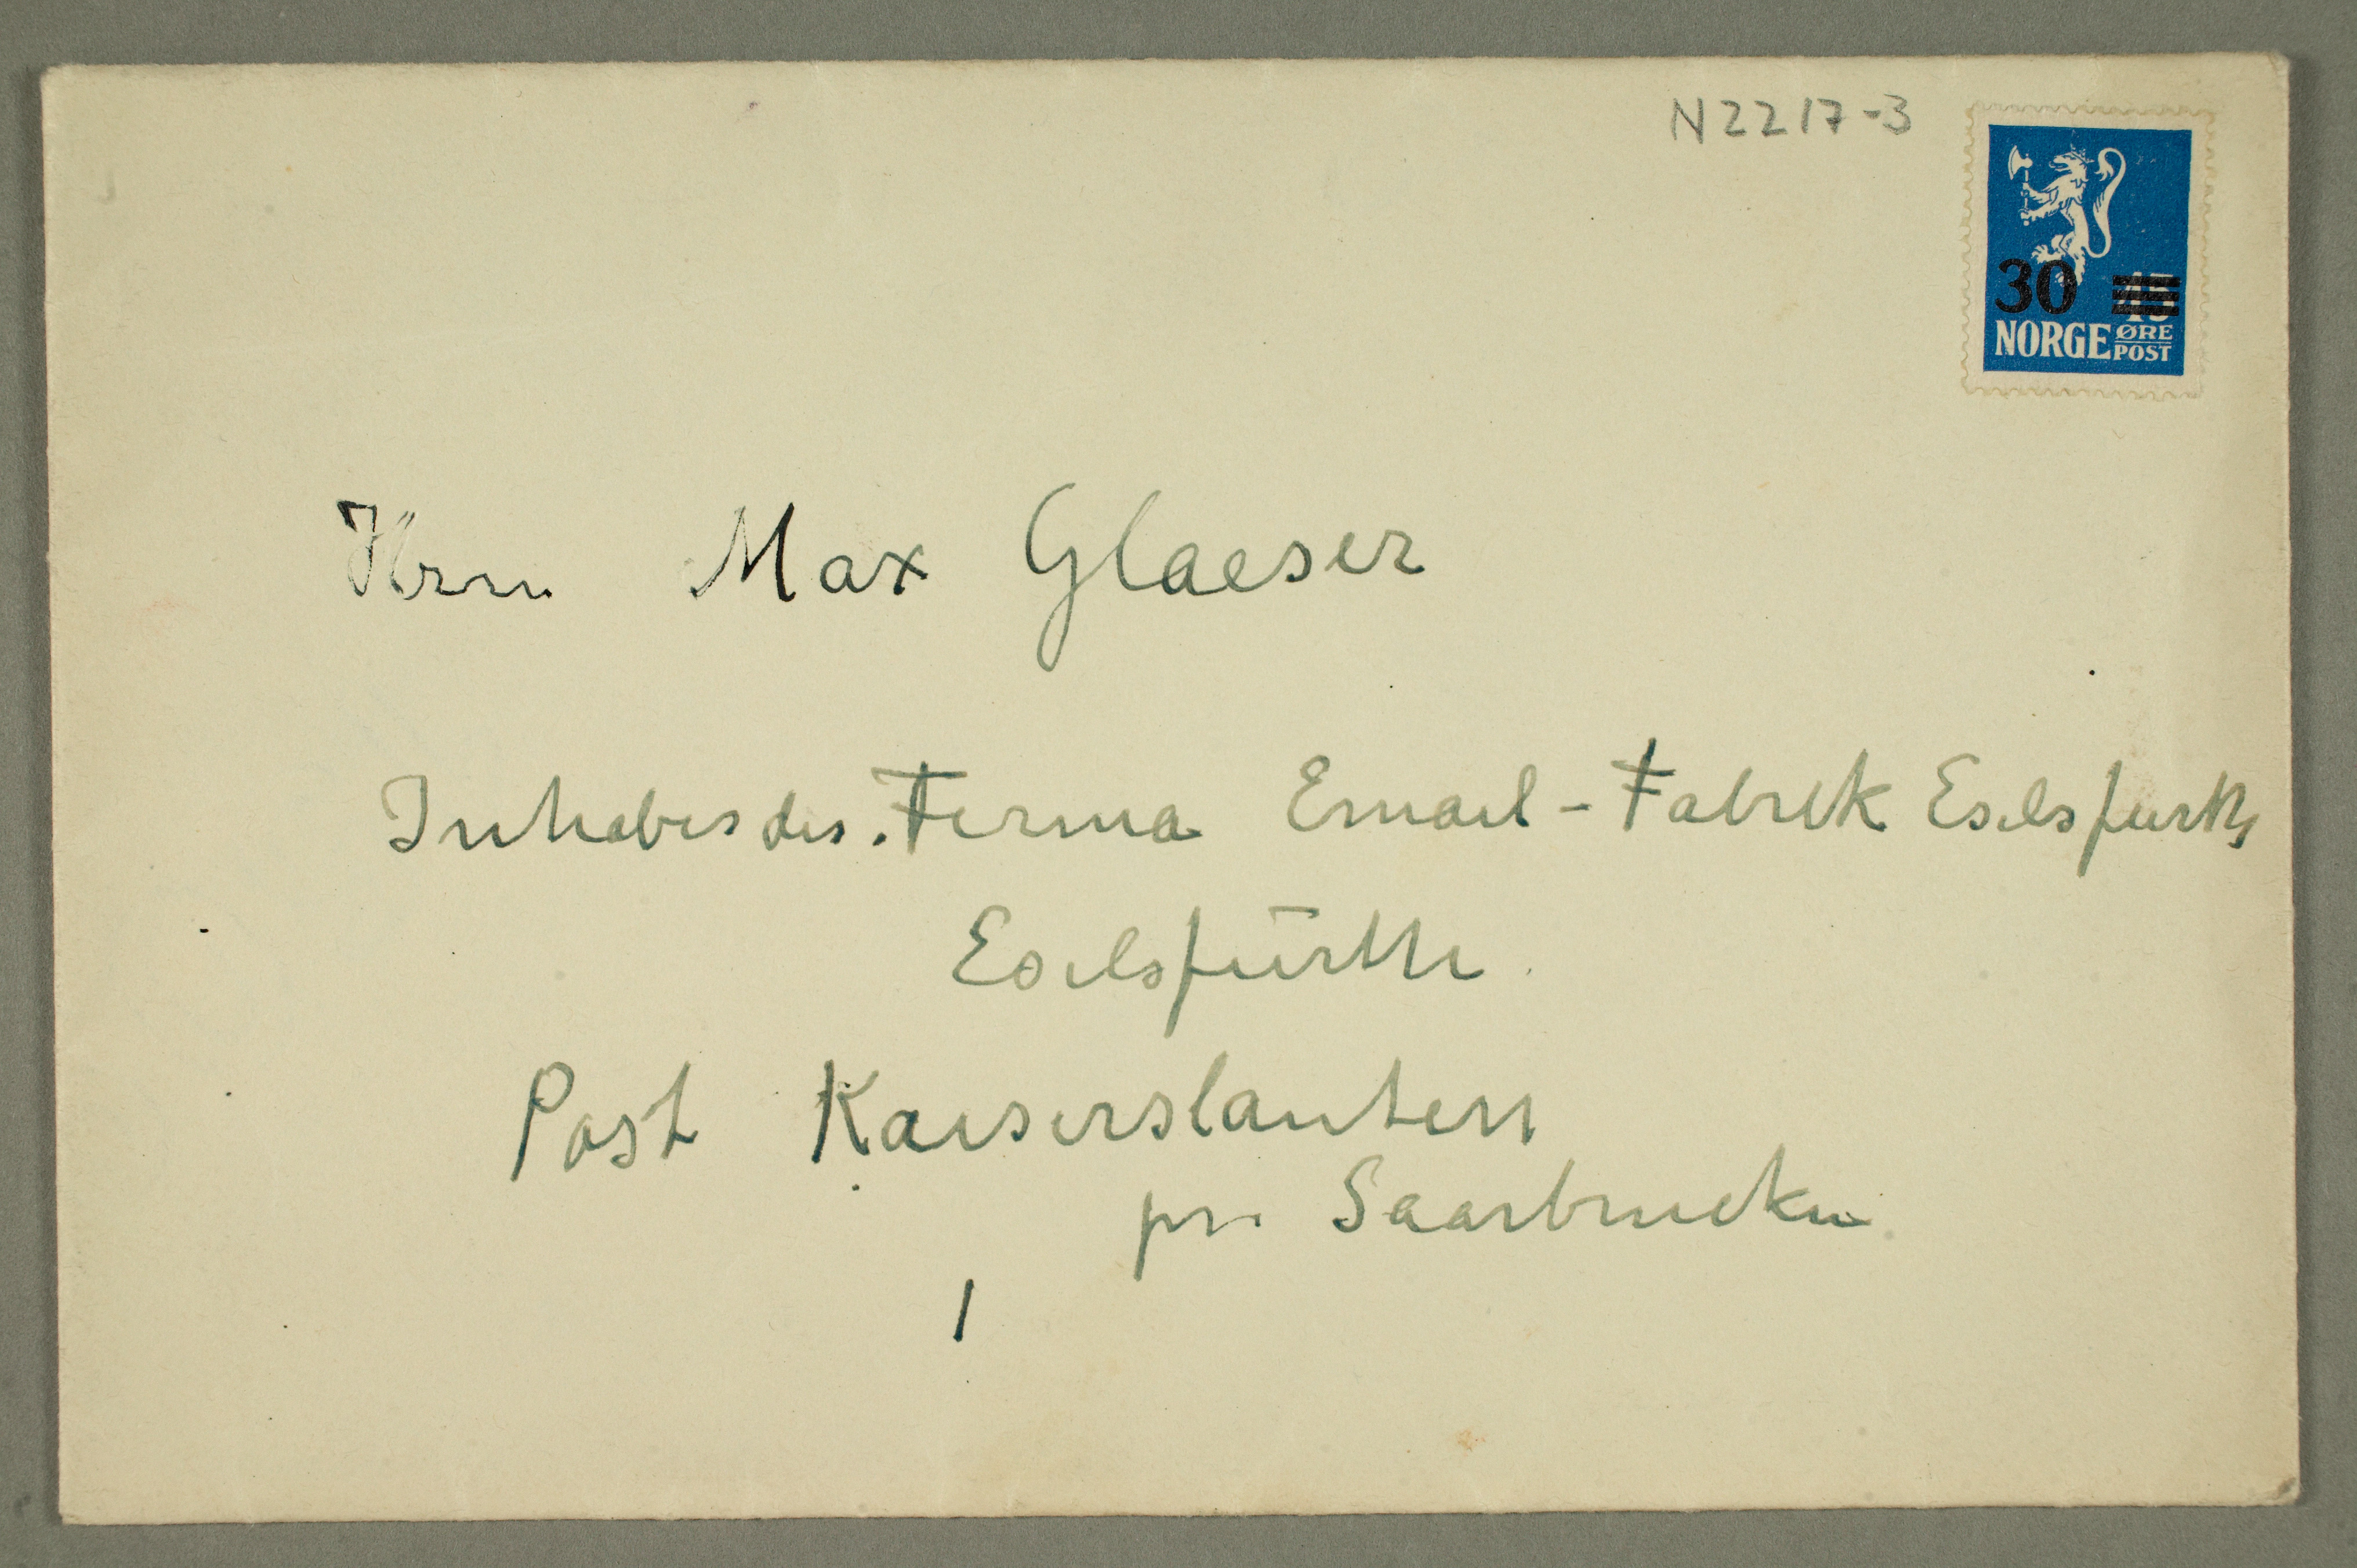 N 2217-3
30 45
NORGE ØRE POST
Hrrn Max Glaeser
Inhaber der Firma Email-Fabrik Eselsfurth
Eselsfürth
Post Kaiserslautern
pr. Saarbrucken